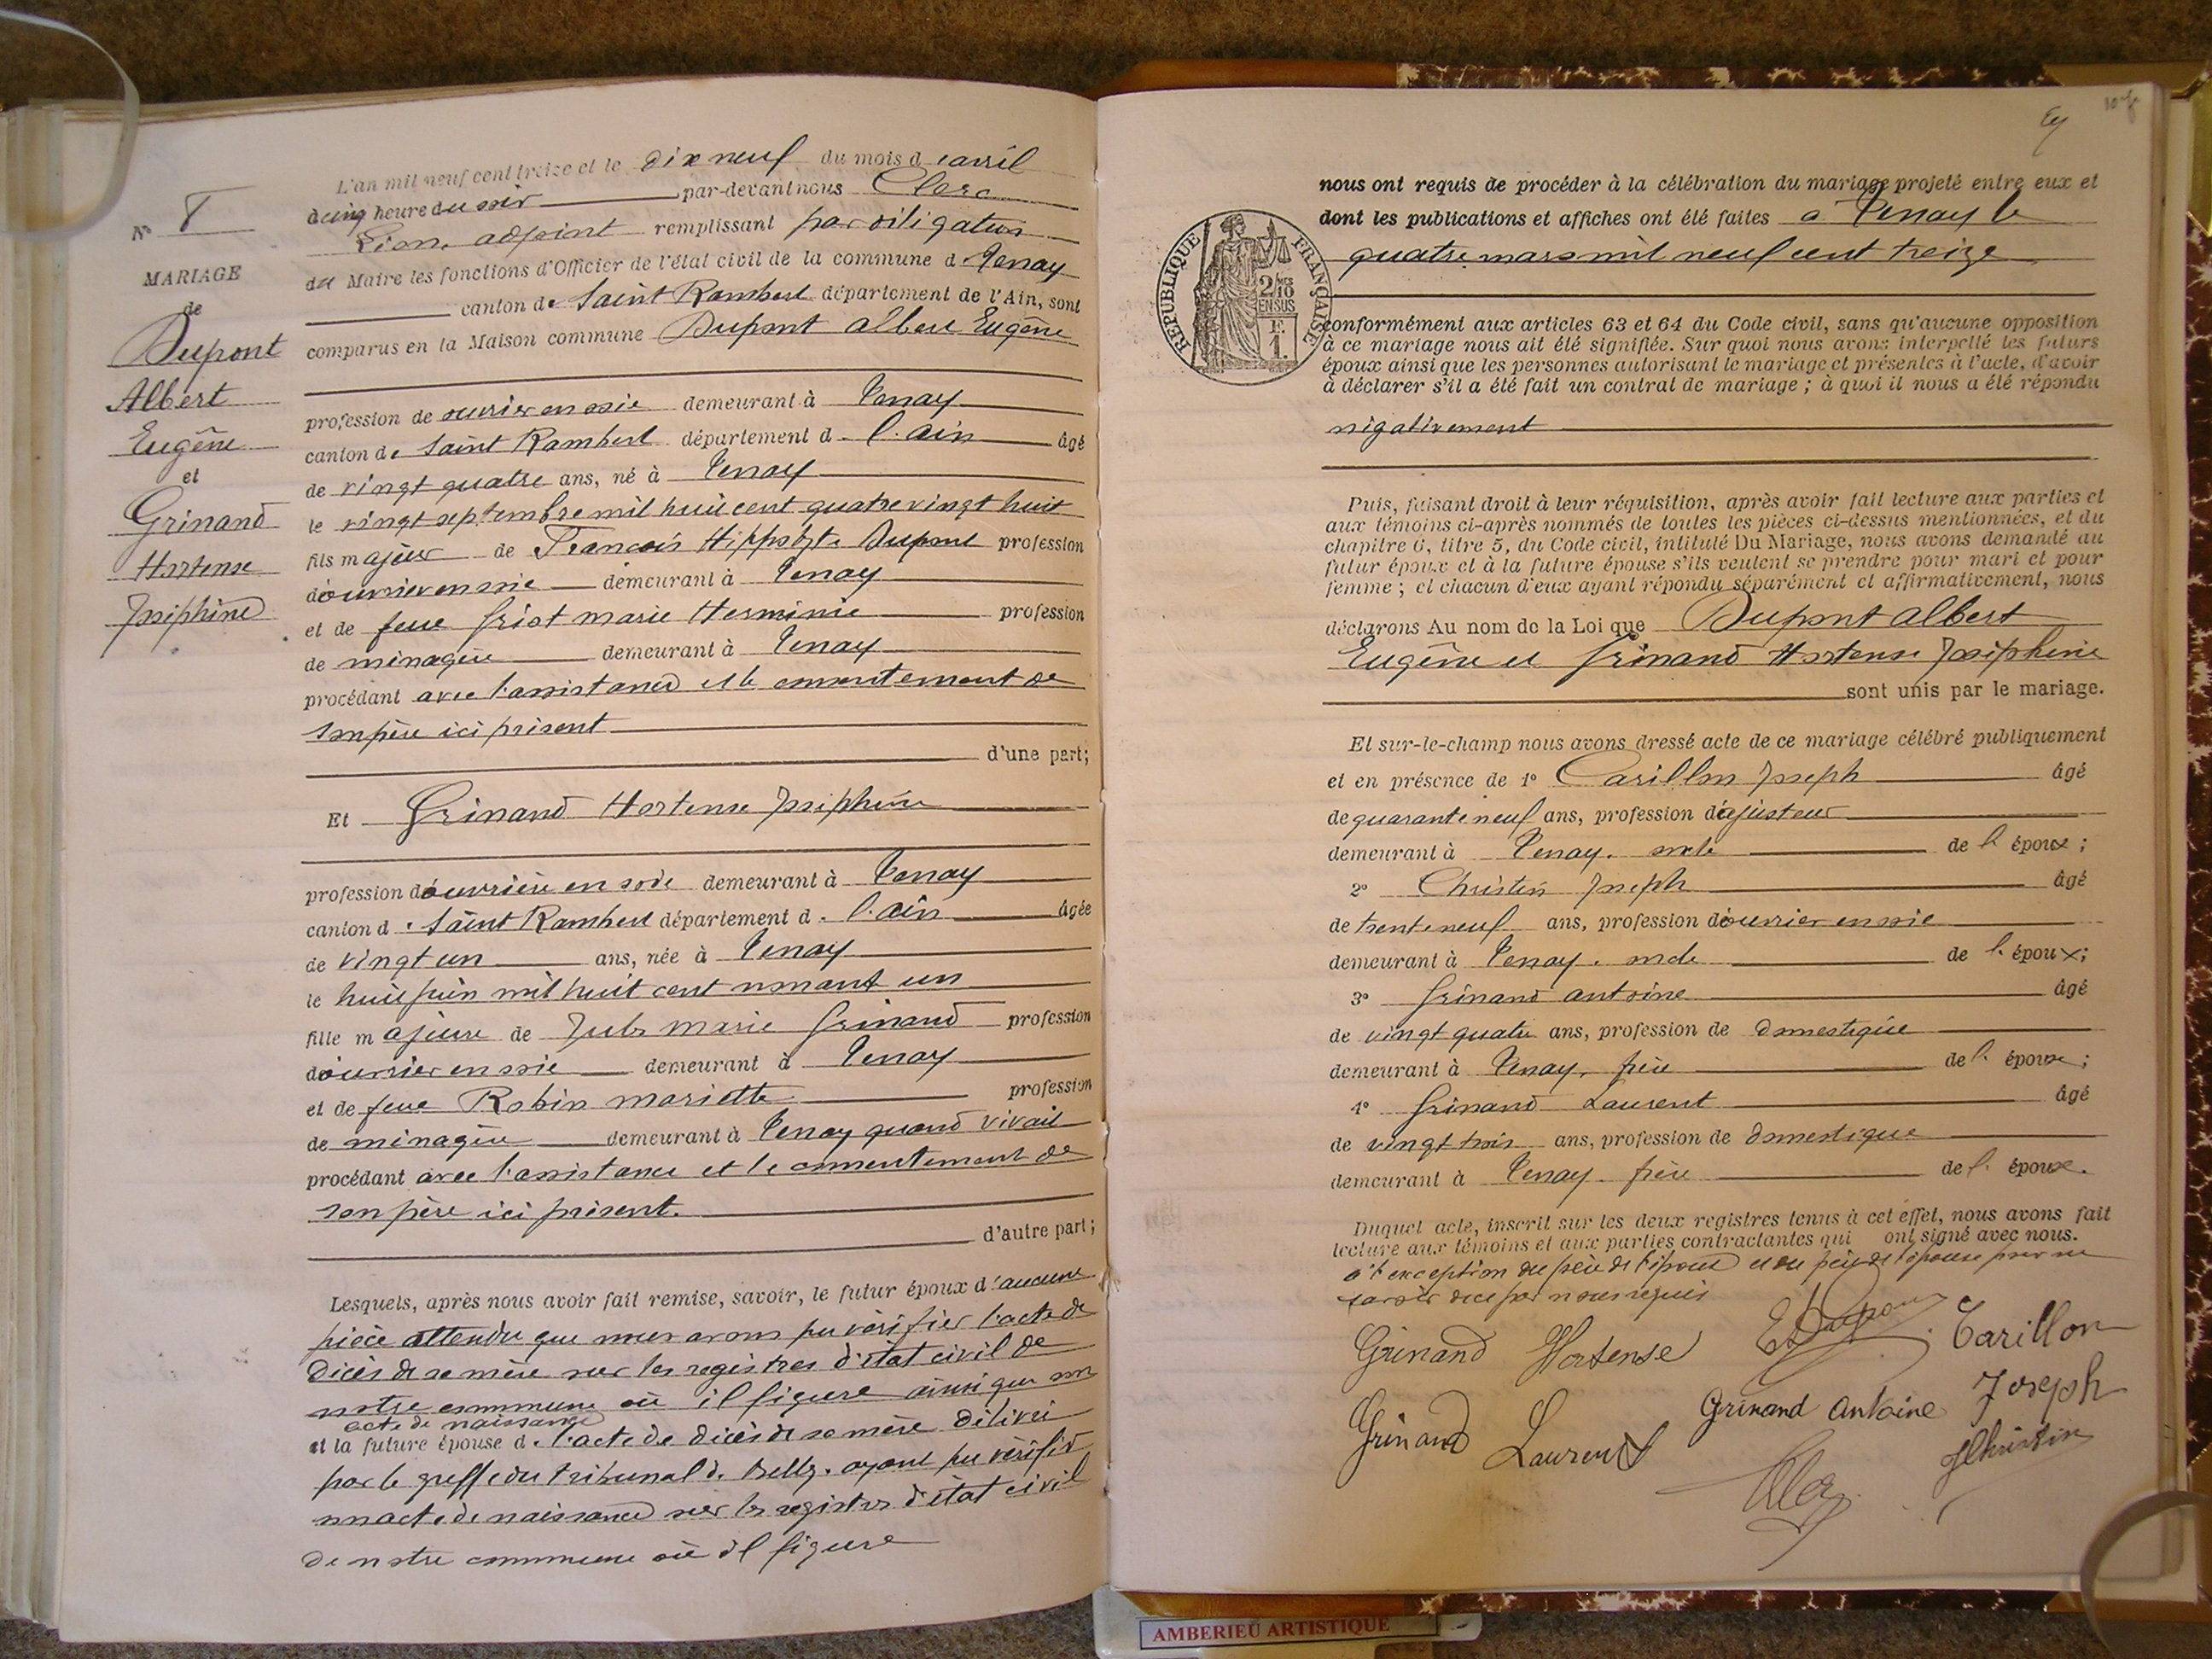 N° 8
MARIAGE
de
Dupont
Albert
Eugène
et
Grinand
Hortense
Joséphine
L'an mil neuf cent treize et le dix neuf du mois d'avril
à cinq heure du soir par-devant nous Clerc
Léon, adjoint remplissant par déligation
du Maire les fonctions d'Officier de l'état civil de la commune de Tenay
canton de Saint Rambert département de l'Ain, sont
comparus en la Maison commune Dupont Albert Eugène
profession de ouvrier en soie demeurant à Tenay
canton de Saint Rambert département d. l'ain âgé
de vingt quatre ans, né à Tenay
le vingt septembre mil huit cent quatre vingt huit
fils majeur de François Hippolyte Dupont profession
d'ouvrier en soie demeurant à Tenay
et de feue Griot marie Herminie profession
de ménagère demeurant à Tenay
procédant avec l'assistance et le consentement de
son père ici présent
d'une part;
Et Grinand Hortense Joséphine
profession d'ouvrière en soie demeurant à Tenay
canton d. Saint Rambert département d. l'ain âgée
de vingt un ans, née à Tenay
le huit juin mil huit cent nonant un
fille majeure de Jules marie Grinand profession
d'ouvrier en soie demeurant à Tenay
et de feue Robin mariette profession
de ménagère demeurant à Tenay quand vivait
procédant avec l'assistance et le consentement de
son père ici présent.
d'autre part;
Lesquels, après nous avoir fait remise, savoir, le futur époux d'aucune
pièce attendu que nous avons pu vérifier l'acte de
décès de sa mère sur les registres d'état civil de
notre commune où il figure ainsi que son
acte de naissance
et la future épouse d. l'acte de décès de sa mère délivré
par le greffe du tribunal de Belley. ayant pu vérifier
son acte de naissance sur les registres d'état civil
de notre commune où il figure
nous ont requis de procéder à la célébration du mariage projeté entre eux et
dont les publications et affiches ont été faites à Tenay le
quatre mars mil neuf cent treize
REPUBLIQUE FRANÇAISE
2/10 EN SUS
1 F.
conformément aux articles 63 et 64 du Code civil, sans qu'aucune opposition
à ce mariage nous ait été signifiée. Sur quoi nous avons interpellé les futurs
époux ainsi que les personnes autorisant le mariage et présentes à l'acte, d'avoir
à déclarer s'il a été fait un contrat de mariage ; à quoi il nous a été répondu
négativement
Puis, faisant droit à leur réquisition, après avoir fait lecture aux parties et
aux témoins ci-après nommés de toutes les pièces ci-dessus mentionnées, et du
chapitre 6, titre 5, du Code civil, intitulé Du Mariage, nous avons demandé au
futur époux et à la future épouse s'ils veulent se prendre pour mari et pour
femme ; et chacun d'eux ayant répondu séparément et affirmativement, nous
déclarons Au nom de la Loi que Dupont Albert
Eugène et Grinand Hortense Joséphine
sont unis par le mariage.
Et sur-le-champ nous avons dressé acte de ce mariage célébré publiquement
et en présence de 1° Carillon Joseph âgé
de quarante neuf ans, profession d'ajusteur
demeurant à Tenay. oncle de l'époux ;
2° Christin Joseph âgé
de trente neuf ans, profession d'ouvrier en soie
demeurant à Tenay. oncle de l'époux;
3° Grinand antoine âgé
de vingt quatre ans, profession de domestique
demeurant à Tenay, frère de l'épouse ;
4° Grinand Laurent âgé
de vingt trois ans, profession de domestique
demeurant à Tenay. frère de l'épouse.
Duquel acte, inscrit sur les deux registres tenus à cet effet, nous avons fait
lecture aux témoins et aux parties contractantes qui ont signé avec nous.
à l'exception du père de l'époux et du père de l'épouse pour ne
savoir de ce par nous requis
Grinand Hortense E Dupont Carillon
Joseph
Grinand Laurent Grinand Antoine
JChristin
Clerc
AMBERIEU ARTISTIQUE